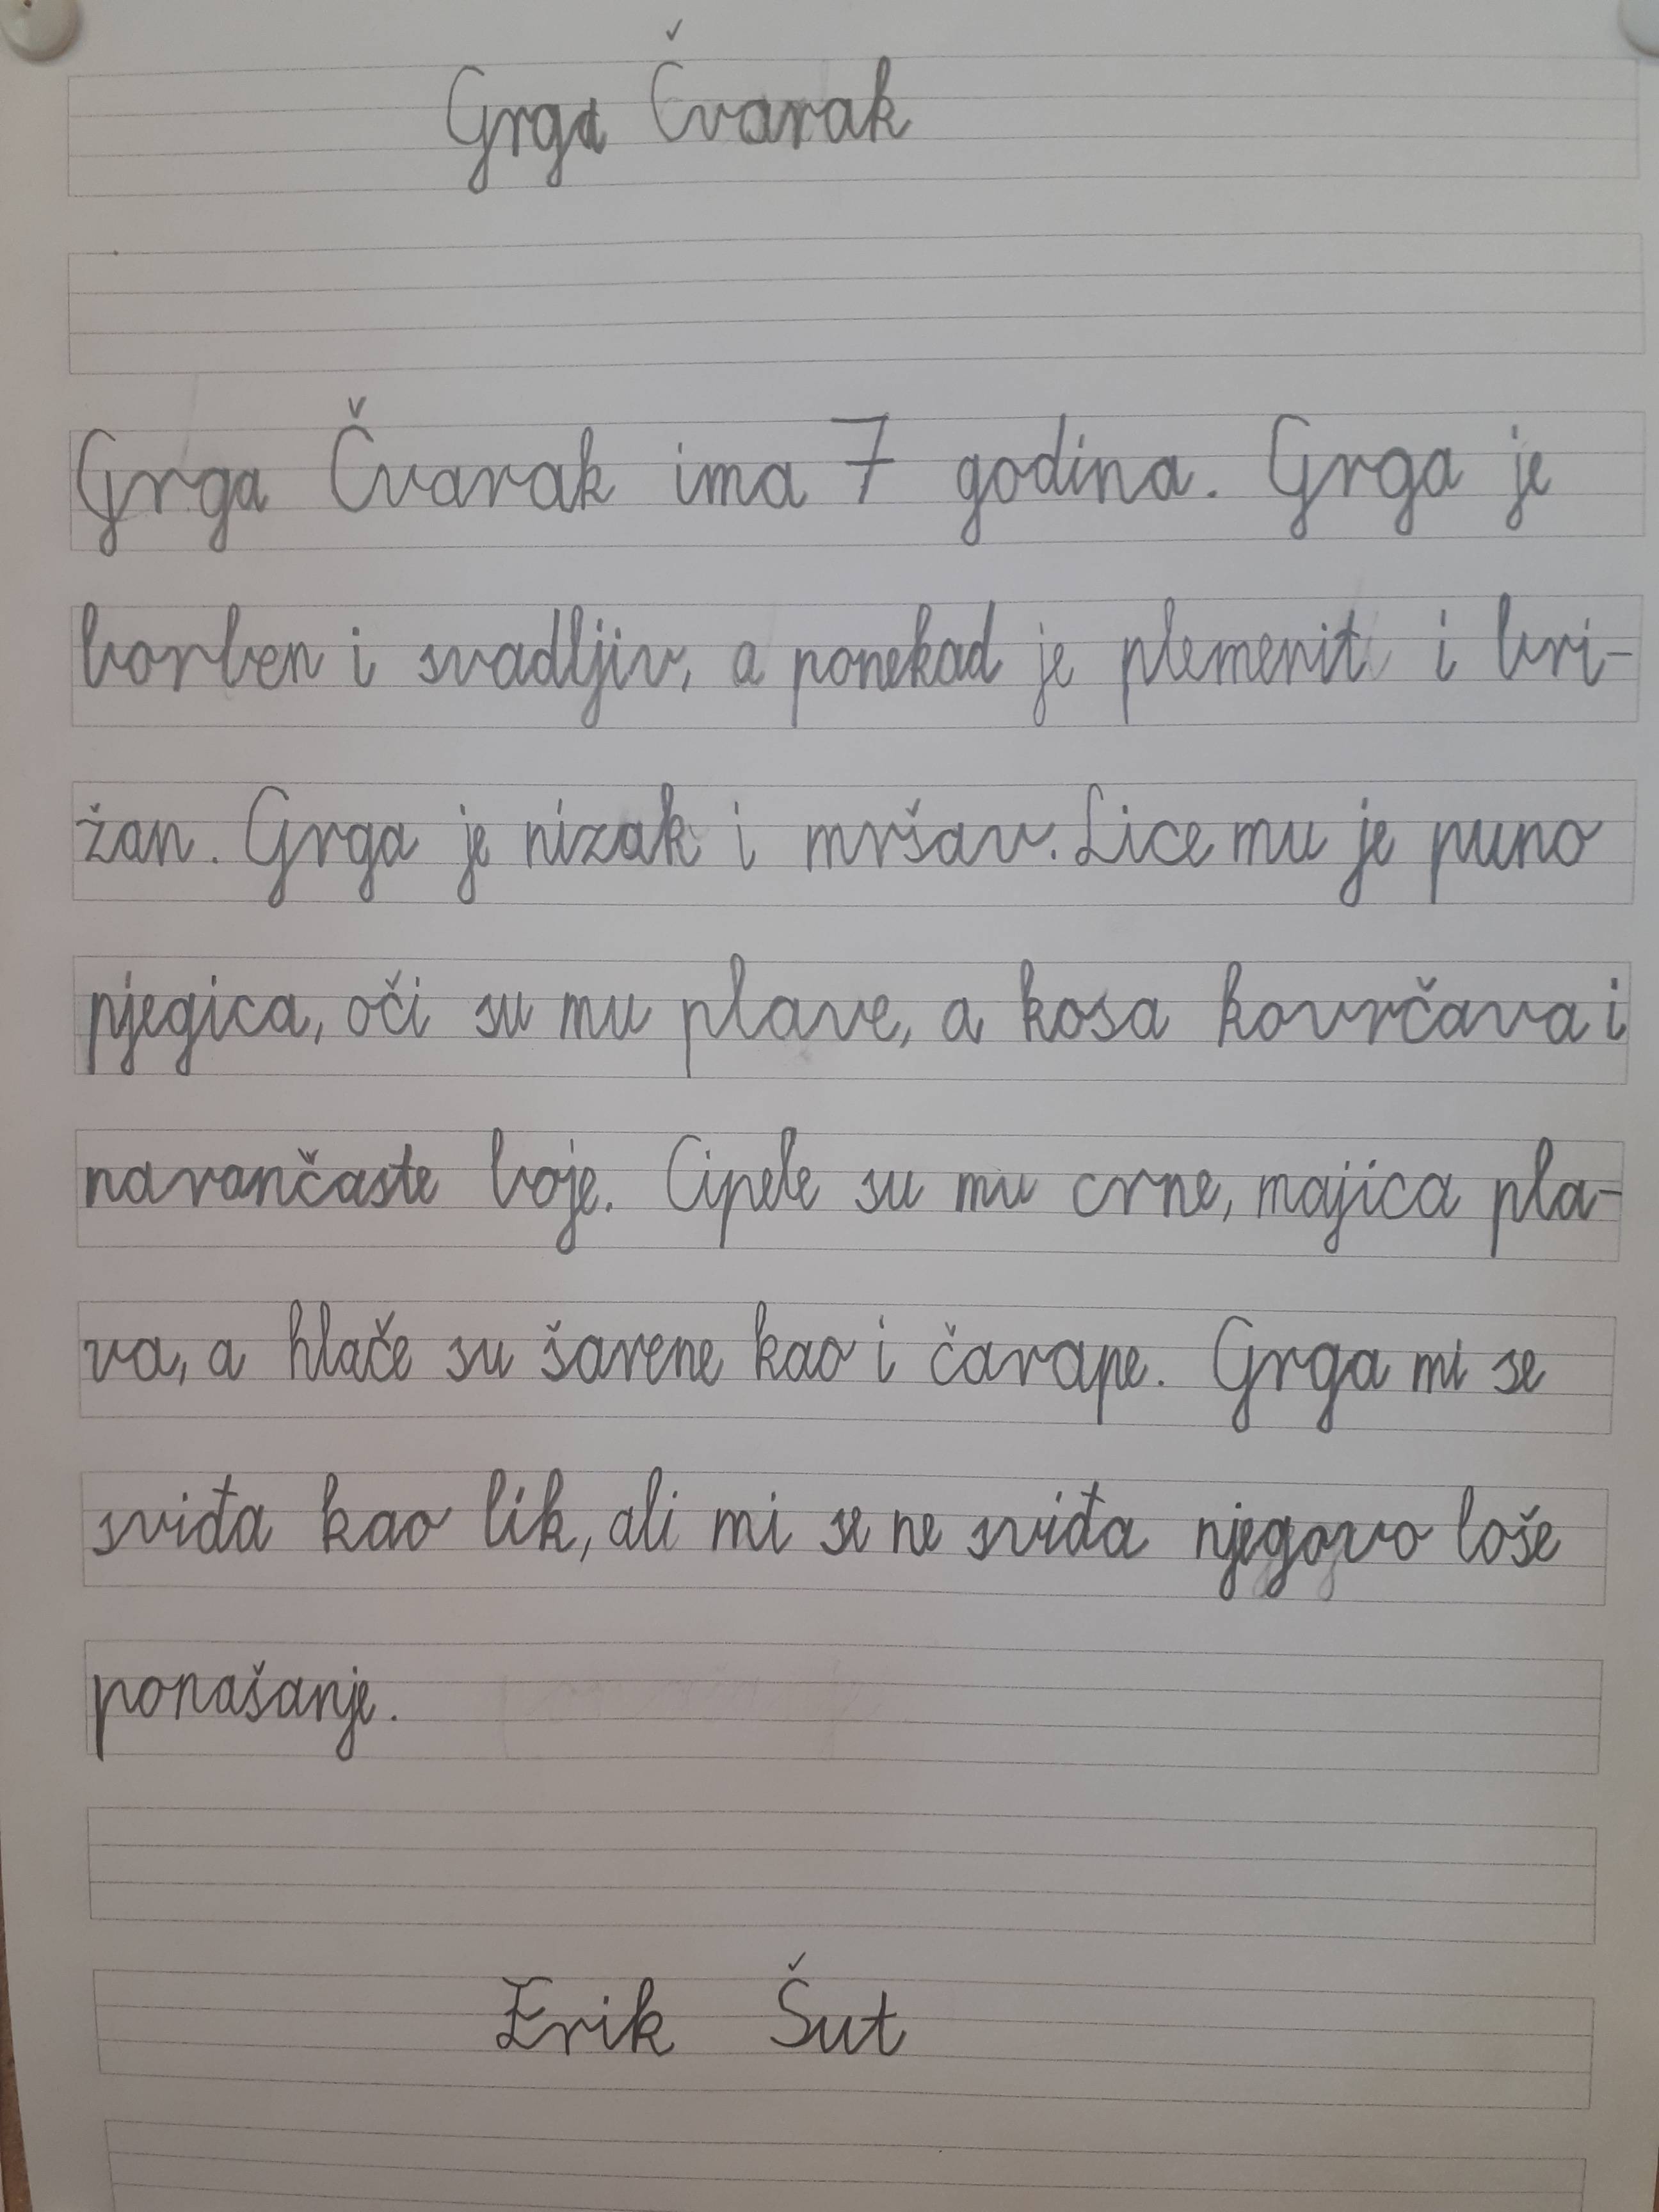 Grga Čvarak
Grga Čvarak ima 7 godina. Grga je
borben i svadljiv, a ponekad je plemenit i bri-
žan. Grga je nizak i mršav. Lice mu je puno
pjegica, oči su mu plave, a kosa kovrčava i
narančaste boje. Cipele su mu crne, majica pla-
va, a hlače su šarene kao i čarape. Grga mi se
sviđa kao lik, ali mi se ne sviđa njegovo loše
ponašanje.
Erik Šut